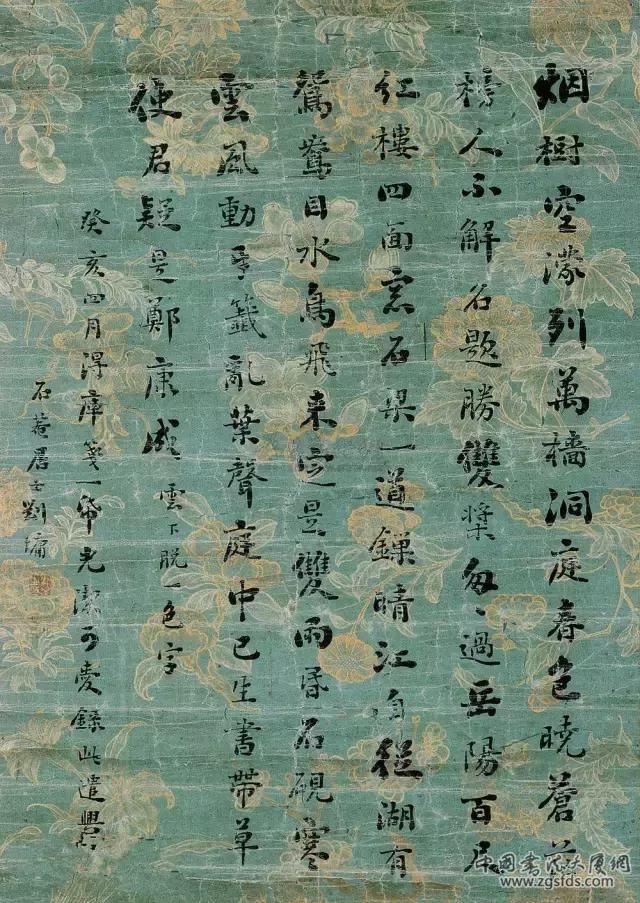 烟樹空濛列萬檣洞庭春色曉蒼
榜人不解名題勝雙槳匆〻過岳陽百尺
紅樓四面窓石梁一道鏁晴江自從湖有
鴛鴦目水鳥飛来定是雙雨昏石硯寒
雲風動牙籤亂葉聲庭中已生書帶草
使君疑是鄭康成 雲下脱一色字
癸亥四月得庫箋一帋光潔可愛錄此遣興
石菴居士劉墉
中國書法大厦網
www.zgsfds.com